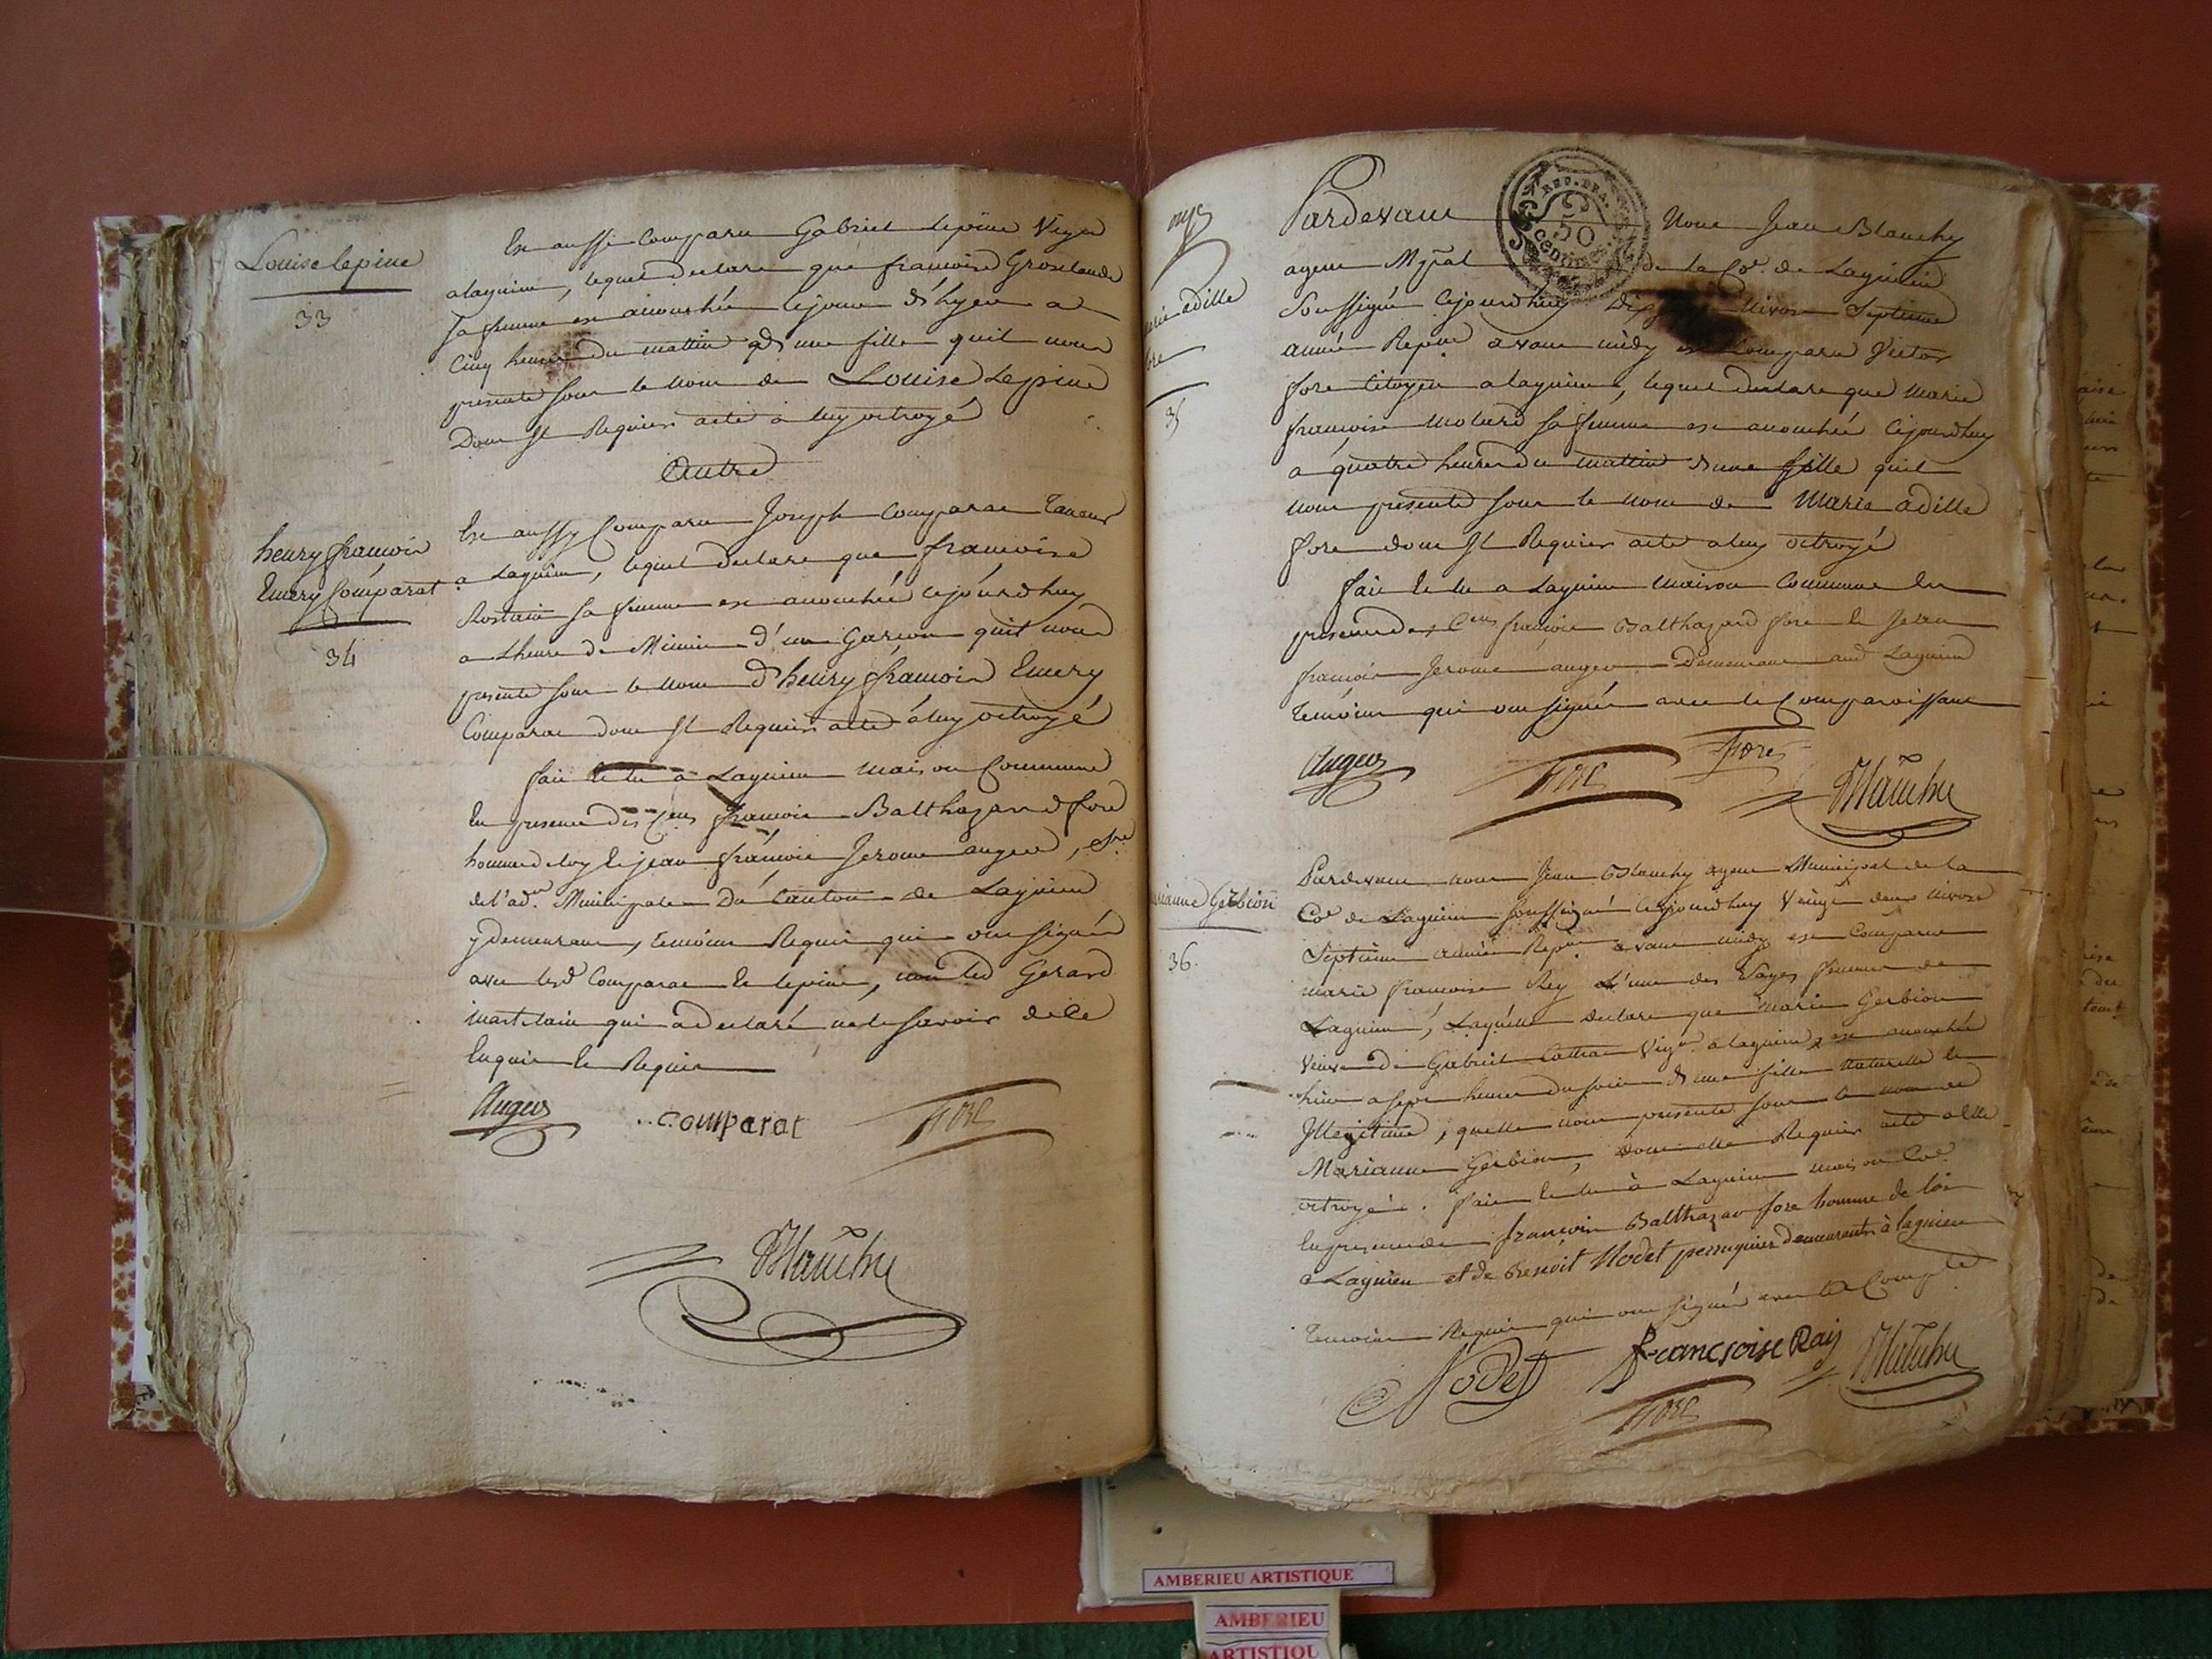 Louise lepine
33
Est aussi Comparu Gabriel lepine Vigon
a lagnieu, lequel declare que francoise Groslande
sa femme est accouchée le jour d'hyer a
Cinq heures du mattin d'une fille quil nous
presente sous le nom de Louise Lepine
Dont et Requier acte a luy octroyé
Autre
henry francois
Emery Comparat
34
Est aussy Comparu Joseph Comparat Taneur
a Lagnieu, lequel declare que francoise
Rostain sa femme est accouchée cejourdhuy
a Lheure de Minuit d'un Garcon quil nous
presente sous le nom d'henry francois Emery
Comparat dont et Requier acte a luy octroyé
fait et lu a Lagnieu maison Commune
En presence des Cens francois Balthazard fore
homme de loy et jean francois Jerome auger, Sre
de l'adon. Municipale Du Canton de Lagnieu
y demeurant, temoins Requis qui ont signé
avec lesd Comparat et lepine, non led Gerard
qui a declaré ne le savoir de ce
Enquis et Requis
Auger comparat fore
Blanchy
Marie adille
fore
35
Pardevant Nous Jean Blanchy
agent Mpal de la Co.e de Lagnieu
Soussigné Cejourdhuy nivose Septieme
année Repne avant midy est Comparu Victor
fore Citoyen a lagnieu, lequel declare que Marie
francoise Molard sa femme est accouchée Cejourdhuy
a quatre heures du mattin d'une fille quil
nous presente sous le nom de Marie adille
fore dont et Requier acte a luy octroyé
fait et lu a Lagnieu maison Commune En
presence des Cens francois Balthazard fore et Jean
francois Jerome auger Demeurant aud Lagnieu
Temoins qui ont signé avec le Comparoissant
Auger fore fore Blanchy
Marianne Gerbion
36.
Pardevant nous Jean Blanchy agent Municipal de la
Coe de Lagnieu soussigné cejourdhuy Vingt deux nivose
Septieme année Repne avant midy est Comparue
marie francoise Rey L'une des Sages femmes de
Lagnieu, Laquelle Declare que marie Gerbion
Veuve de Gabriel Vigon a lagnieu, est accouchée
hier a sept heures du soir d'une fille naturelle et
Illegitime, quelle nous presente sous le nom de
Marianne Gerbion, dont elle Requier acte a Elle
octroyé. fait et lu à Lagnieu maison Coe
En presence de francois Balthazar fore homme de loi
a Lagnieu et de Benoit Nodet perruquier demeurants à lagnieu
Temoins Requis qui ont signé avec la Compte
Nodet francsoise Raij Blanchy
fore
REP. FRA.
50
CENTIMES
AMBERIEU ARTISTIQUE
AMBERIEU
ARTISTIQU